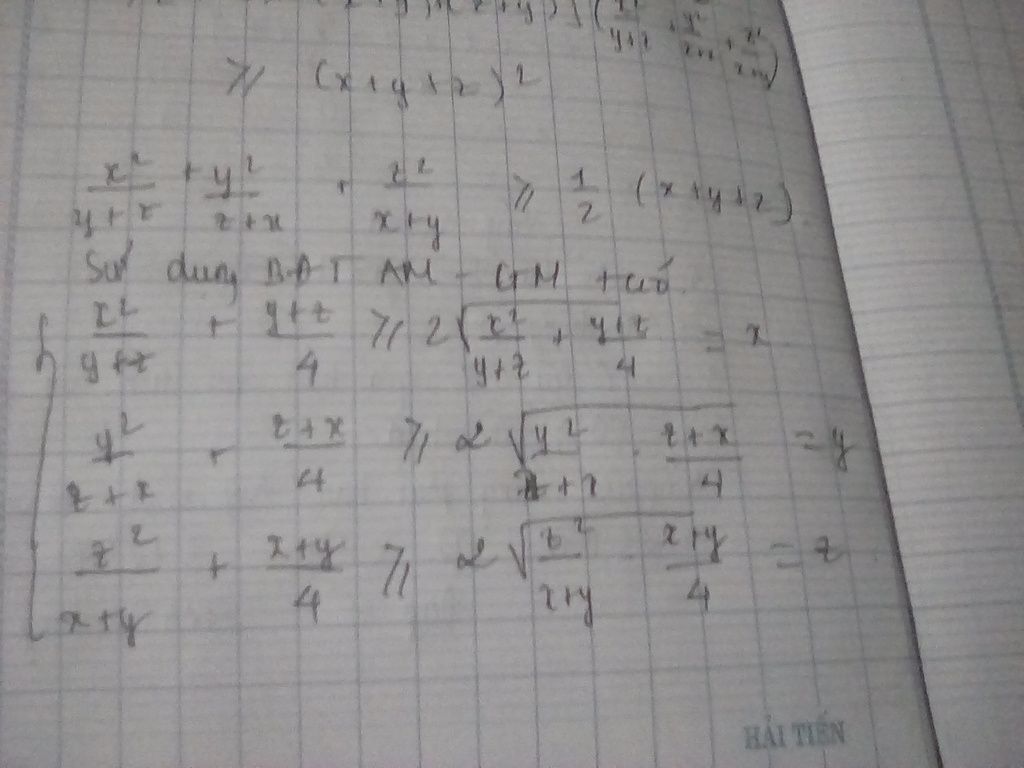 ≥ (x+y+z)²
x²/(y+z) + y²/(z+x) + z²/(x+y) ≥ 1/2 (x+y+z)
Sử dụng BĐT AM - GM ta có
x²/(y+z) + (y+z)/4 ≥ 2√(x²/(y+z) + (y+z)/4) = x
y²/(z+x) + (z+x)/4 ≥ 2√(y²/(z+x) . (z+x)/4) = y
z²/(x+y) + (x+y)/4 ≥ 2√(z²/(x+y) . (x+y)/4) = z
HẢI TIẾN